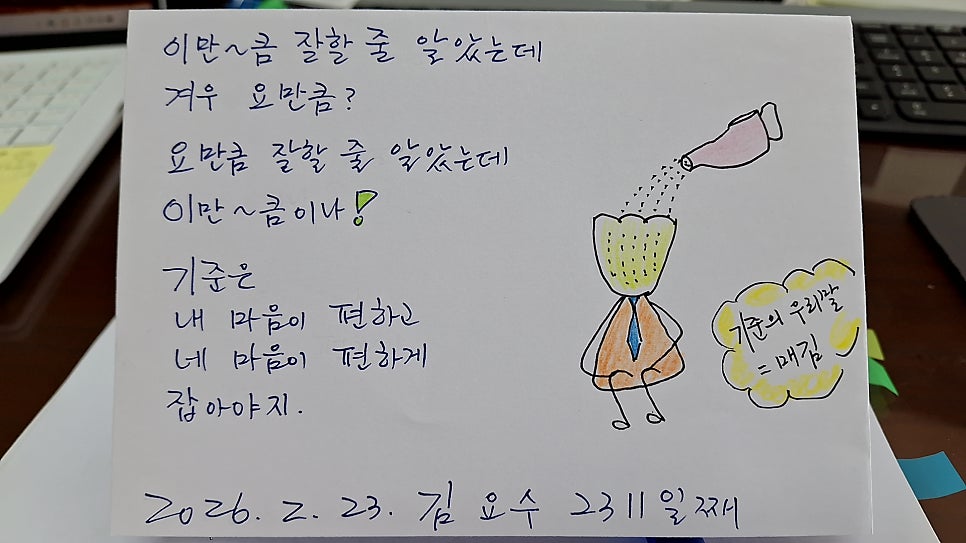 이만~큼 잘할 줄 알았는데
겨우 요만큼?
요만큼 잘할 줄 알았는데
이만~큼이나!
기준은
내 마음이 편하고
네 마음이 편하게
잡아야지.
기준의 우리말
= 매김
2026. 2. 23. 김요수 2311일째